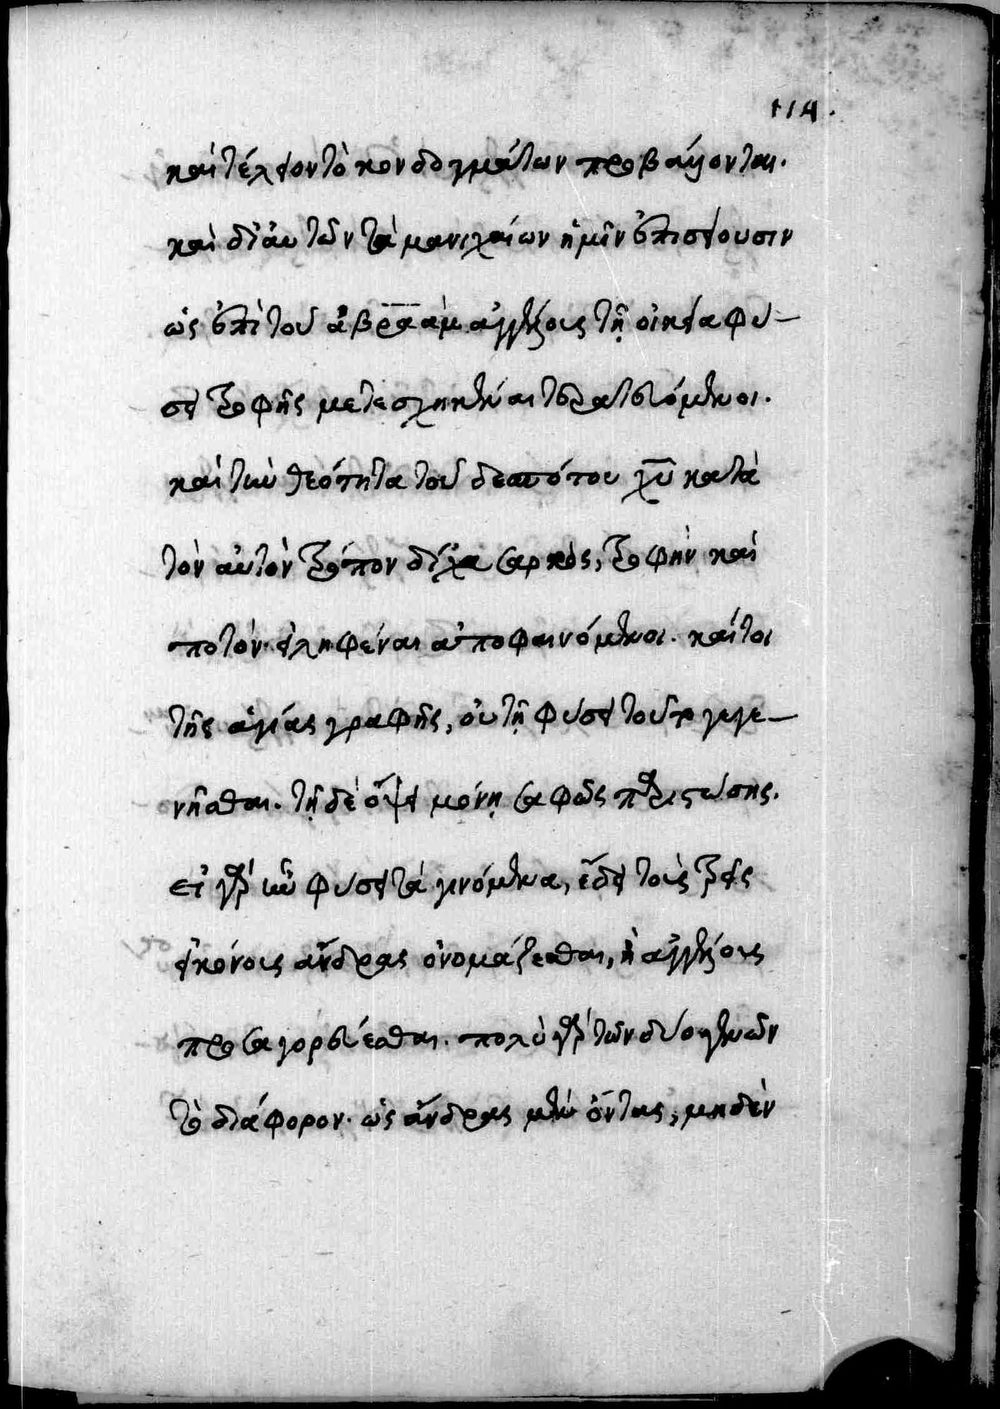 114.
καὶ τέλειον τὸ κον δογμάτων προβάλλονται.
καὶ δι' αὐτῶν τὰ μανιχαίων ἡμῖν ἐπεισάγουσιν
ὡς ἐπὶ τοῦ ἀβραὰμ ἀγγέλους τῇ οἰκεία φύ-
σει τροφῆς μετεσχηκέναι τερατευόμενοι.
καὶ τὴν θεότητα τοῦ δεσπότου χυ κατὰ
τὸν αὐτὸν τρόπον δίχα σαρκός, τροφὴν καὶ
ποτὸν εἰληφέναι ἀποφαινόμενοι. καίτοι
τῆς ἁγίας γραφῆς, οὐ τῇ φύσει τοῦτο γεγε-
νῆσθαι. τῇ δὲ ὄψει μόνῃ σαφῶς παριστώσης.
εἰ γὰρ ἦν φύσει τὰ γινόμενα, ἔδει τοὺς τρεῖς
ἐκείνους ἄνδρας ὀνομάζεσθαι, ἢ ἀγγέλους
προσαγορεύεσθαι. πολὺ γὰρ τῶν δύο γενῶν
τὸ διάφορον. ὡς ἄνδρας μὲν ὄντας, μηδὲν